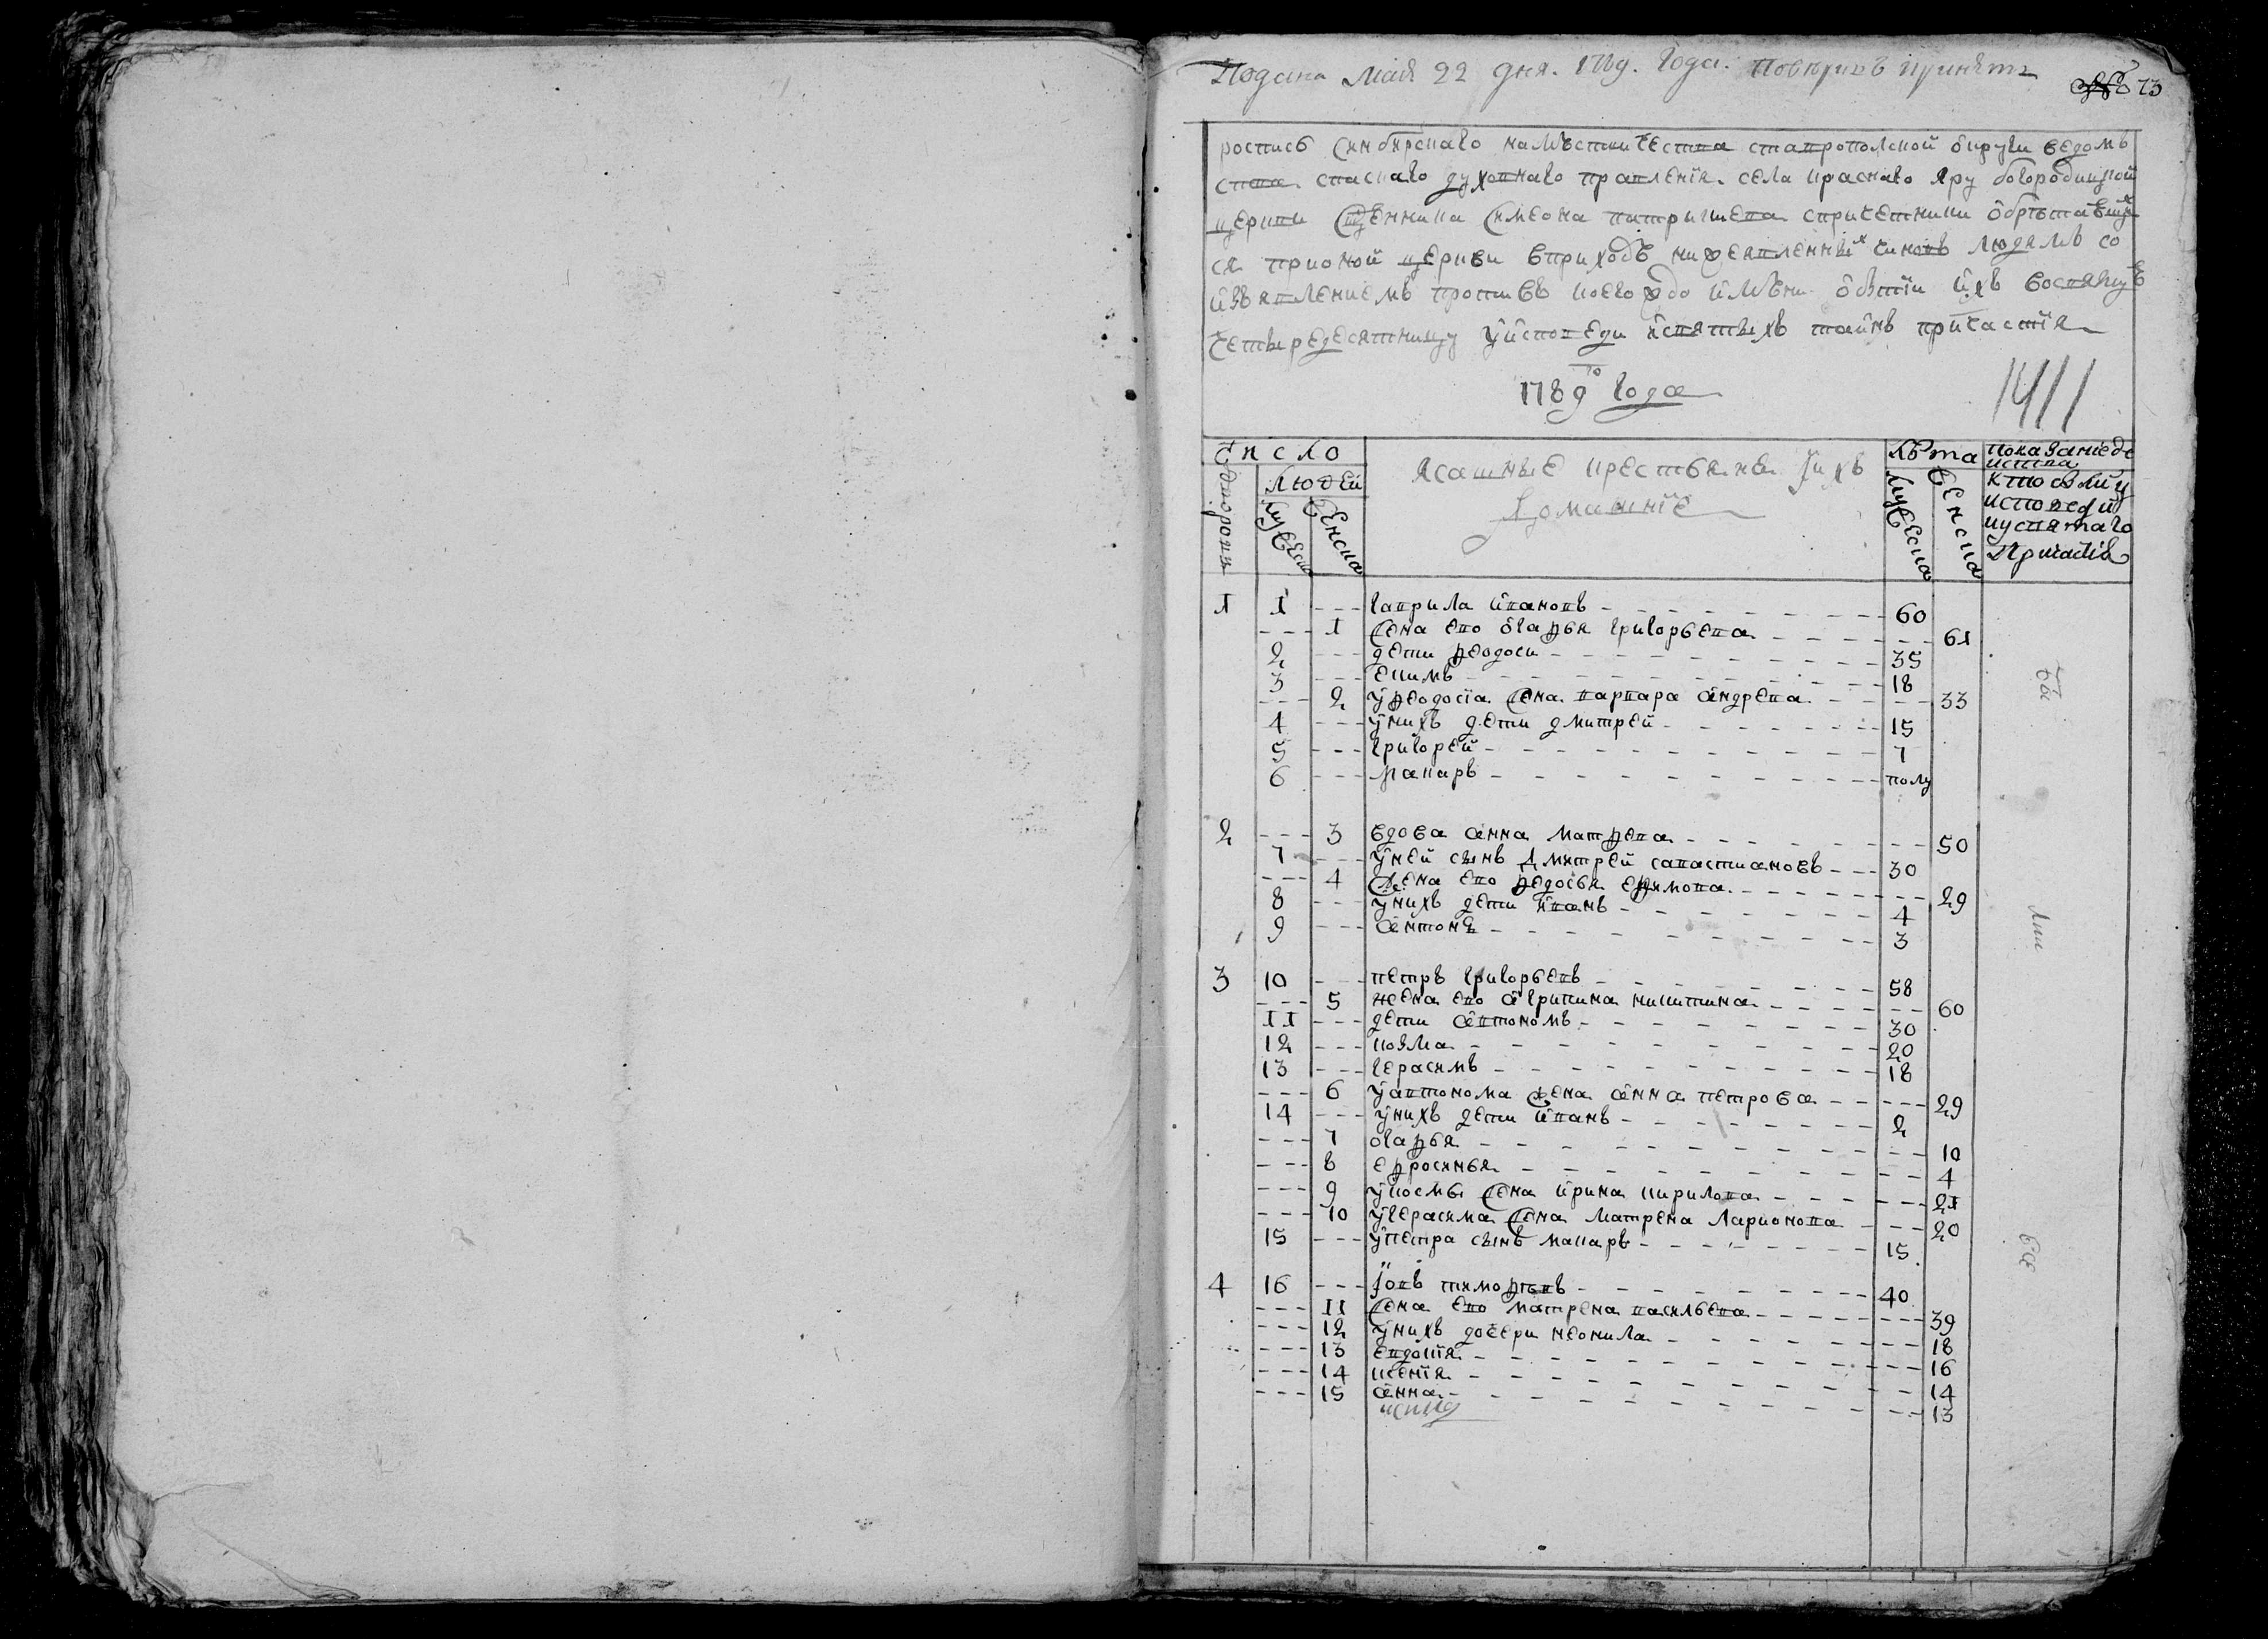 Подана Маія 22 дня. 1789. Года. Повытрикъ принятъ
73
роспись Синбирскаго намѣстничества ставропольской округи ведомъ
ства спаскаго духовнаго правленія села краснаго Яру богородицкой
церкви Священника Симеона патрикиева спричетники обрѣтающих
ся прионой церкви вприходѣ нижеявленныхъ чиновъ людямъ со
изъявлениемъ противъ коегождо имѣни о бытіи ихъ восвятую
четыредесятницу уисповеди исвятыхъ таинъ причастія
1789 го Года
1411
Число
дворовъ
людей
мужеска
женска
Ясашные крестьяне и ихъ
домашніе
лѣта
мужеска
женска
показаніе де
иства
кто былъ у
исповеди
и у святаго
Причастія
1 1 гаврила ивановъ 60
1 жена ево огафья григорьева 61
2 дети феодоси 35
3 екимъ 18
2 у феодосіа жена варвара андрева 33
4 у нихъ дети дмитрей 15
5 григорей 7
6 макаръ полу
2 3 вдова анна матфева 50
7 у ней сынъ Дмитрей савастиановъ 30
4 жена ево федосья ефимова 29
8 у нихъ дети иванъ 4
9 антонъ 3
3 10 петръ григорьевъ 58
5 жена ево агрипина никитина 60
11 дети автономъ 30
12 козма 20
13 герасимъ 18
6 у автонома жена анна петрова 29
14 у нихъ дети иванъ 2
7 огафья 10
8 ефросинья 4
9 у космы жена ирина кирилова 21
10 у герасима жена матрена ларионова 20
15 у петра сынъ макаръ 15
4 16 Іовъ тимофѣевъ 40
11 жена ево матрена васильева 39
12 у нихъ дочери неонила 18
13 евдокія 16
14 ксенія 14
15 анна 13
бы
ли
все